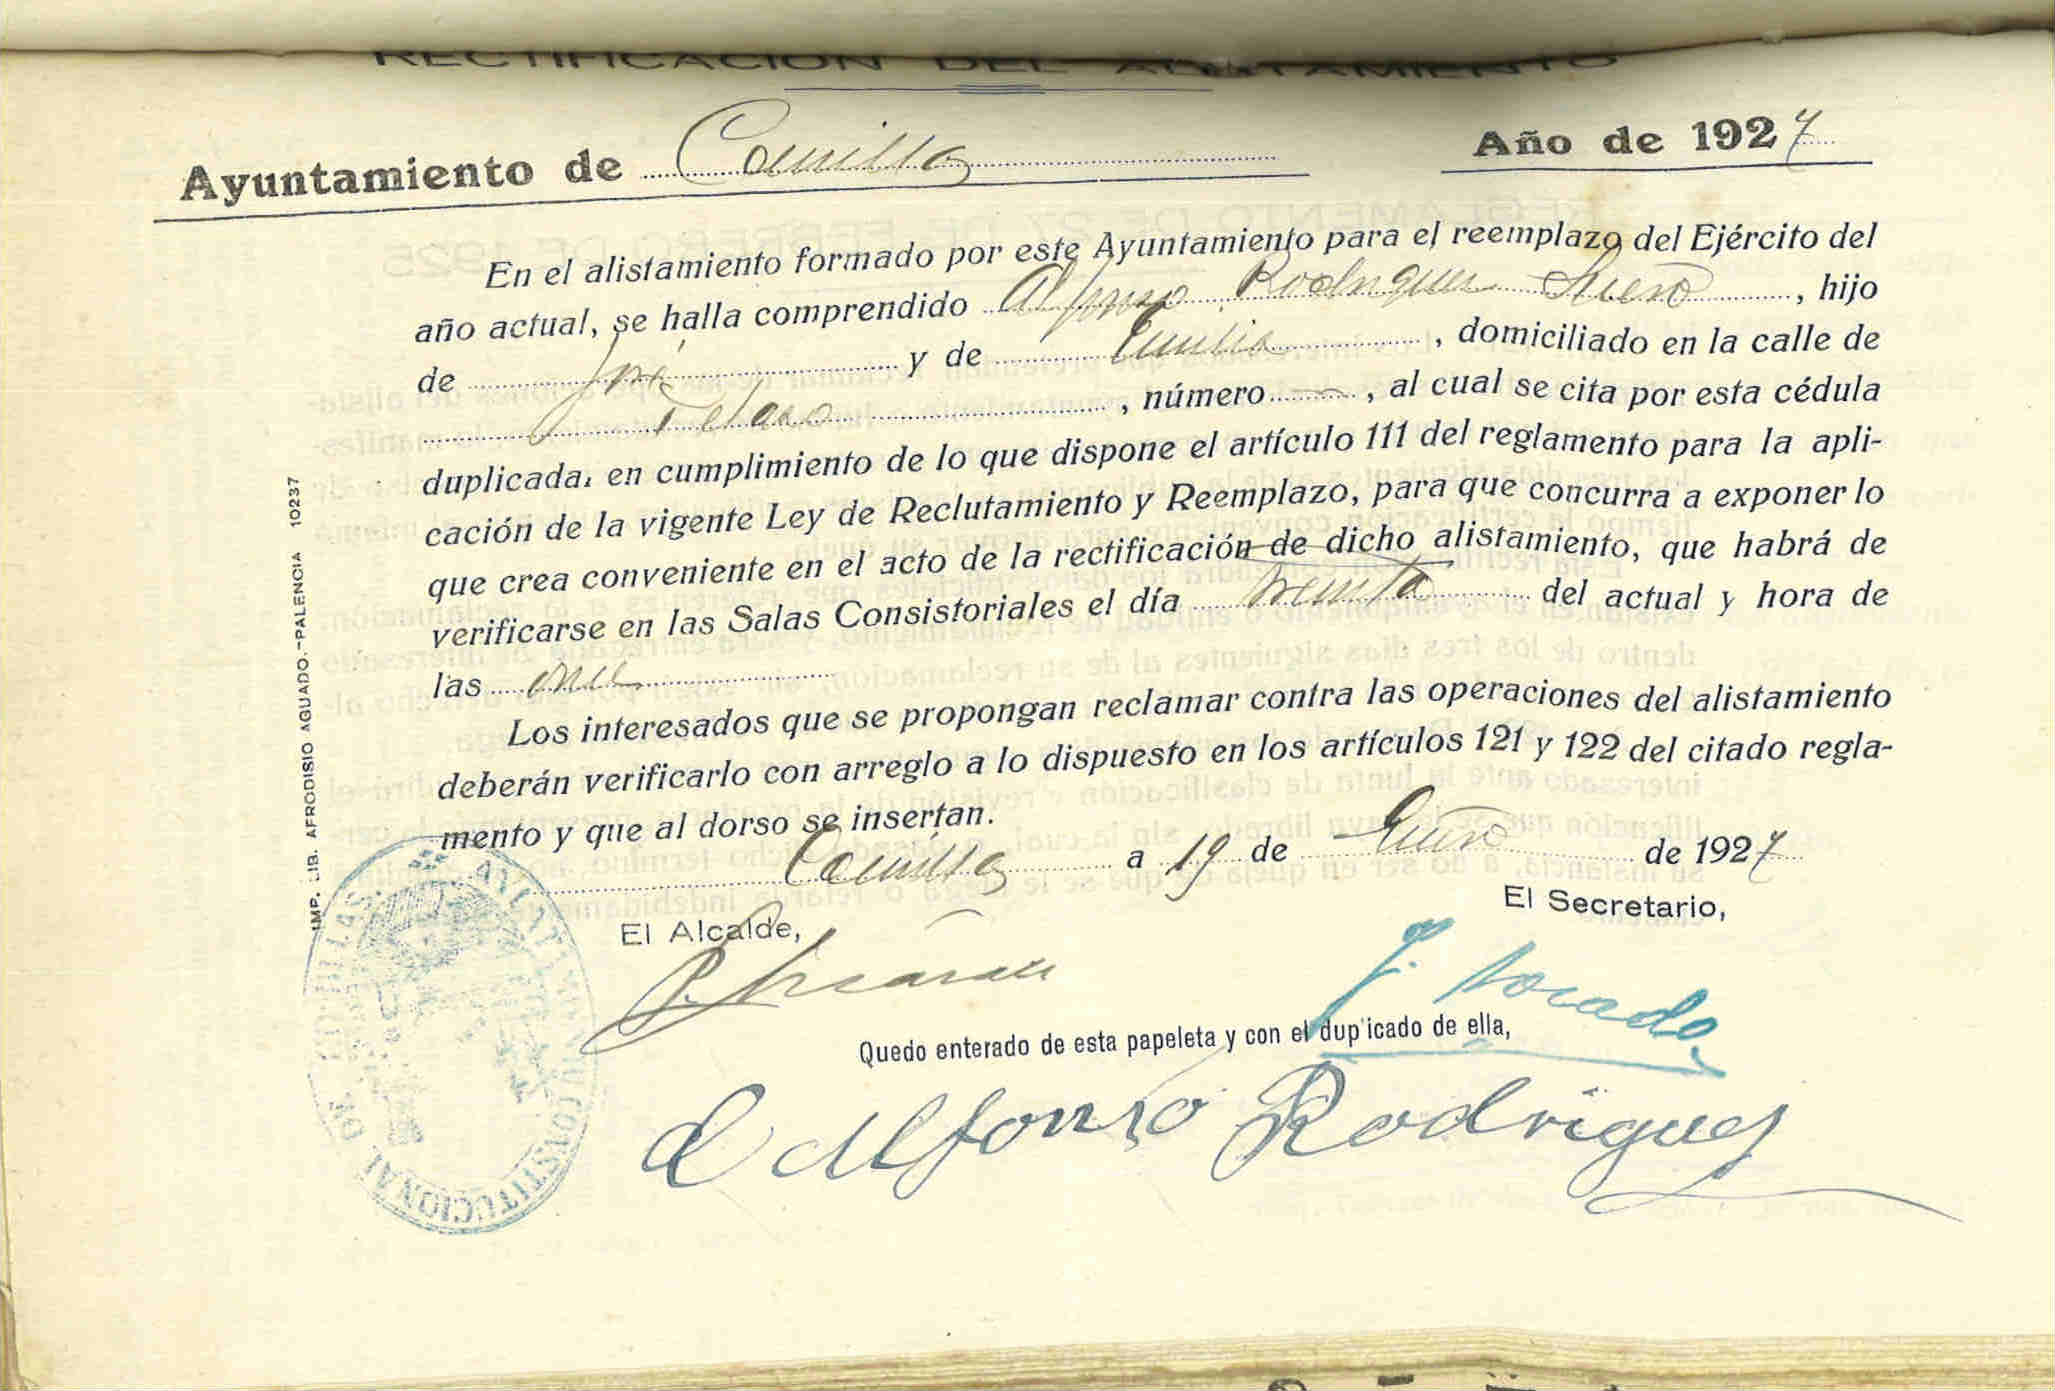 RECTIFICACION DEL ALISTAMIENTO
Ayuntamiento de Año de 1927
En el alistamiento formado por este Ayuntamiento para el reemplazo del Ejército del
año actual, se halla comprendido Alfonso Rodriguez , hijo
de José y de Emilia , domiciliado en la calle de
, número — , al cual se cita por esta cédula
duplicada, en cumplimiento de lo que dispone el artículo 111 del reglamento para la apli-
cación de la vigente Ley de Reclutamiento y Reemplazo, para que concurra a exponer lo
que crea conveniente en el acto de la rectificación de dicho alistamiento, que habrá de
verificarse en las Salas Consistoriales el día treinta del actual y hora de
las once
Los interesados que se propongan reclamar contra las operaciones del alistamiento
deberán verificarlo con arreglo a lo dispuesto en los artículos 121 y 122 del citado regla-
mento y que al dorso se insertan.
a 19 de Enero de 1927
El Alcalde,
El Secretario,
Quedo enterado de esta papeleta y con el duplicado de ella,
Alfonso Rodriguez
IMP. LIB. AFRODISIO AGUADO.-PALENCIA 10237
AYUNTAMIENTO CONSTITUCIONAL DE